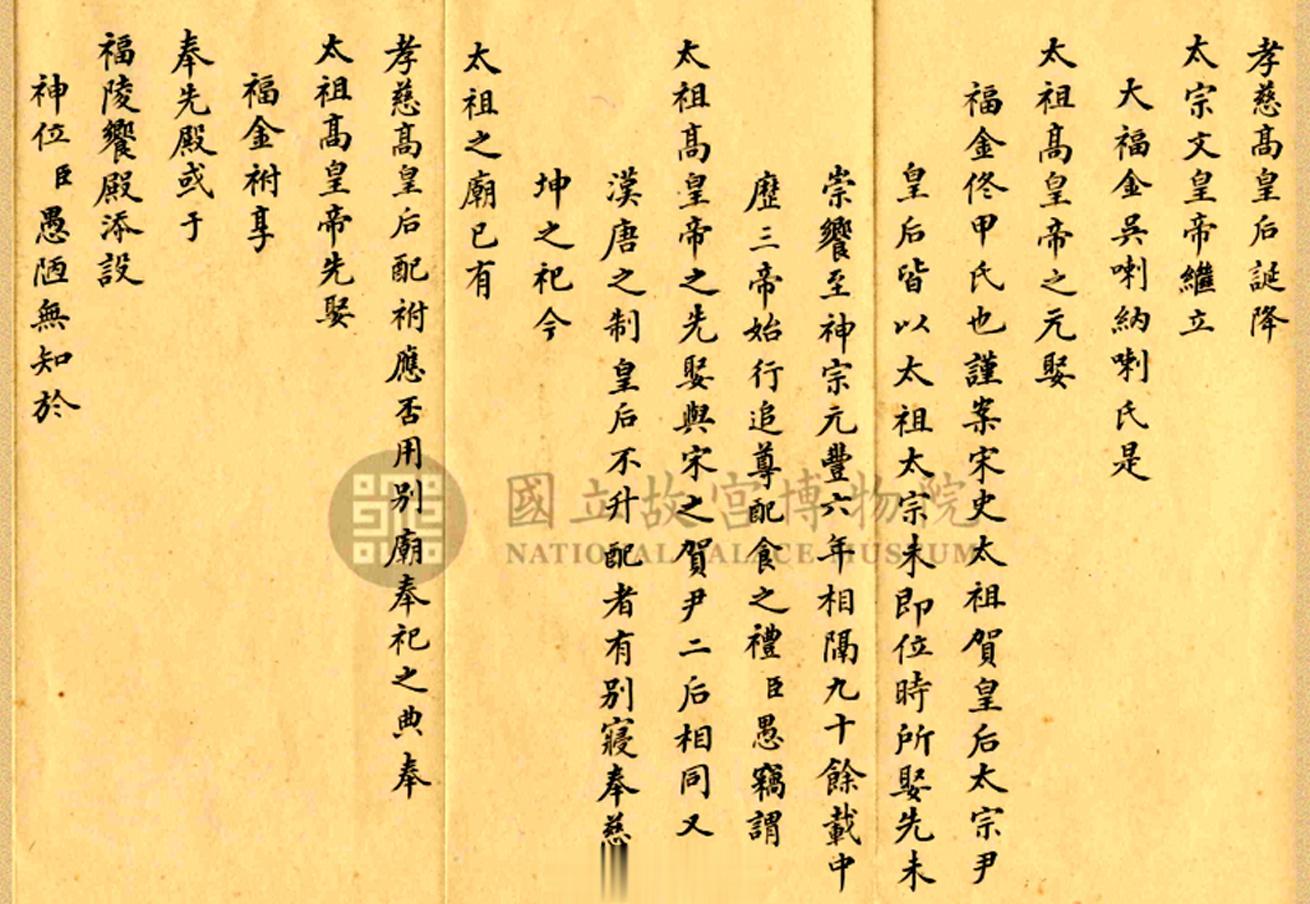 孝慈高皇后誕降
太宗文皇帝繼立
大福金吳喇納喇氏是
太祖高皇帝之元娶
福金佟甲氏也謹案宋史太祖賀皇后太宗尹
皇后皆以太祖太宗未即位時所娶先未
崇饗至神宗元豐六年相隔九十餘載中
歷三帝始行追尊配食之禮臣愚竊謂
太祖高皇帝之先娶與宋之賀尹二后相同又
漢唐之制皇后不升配者有別寢奉慈
坤之祀今
太祖之廟已有
孝慈高皇后配祔應否用別廟奉祀之典奉
太祖高皇帝先娶
福金祔享
奉先殿或于
福陵饗殿添設
神位臣愚陋無知於
國立故宮博物院
NATIONAL PALACE MUSEUM